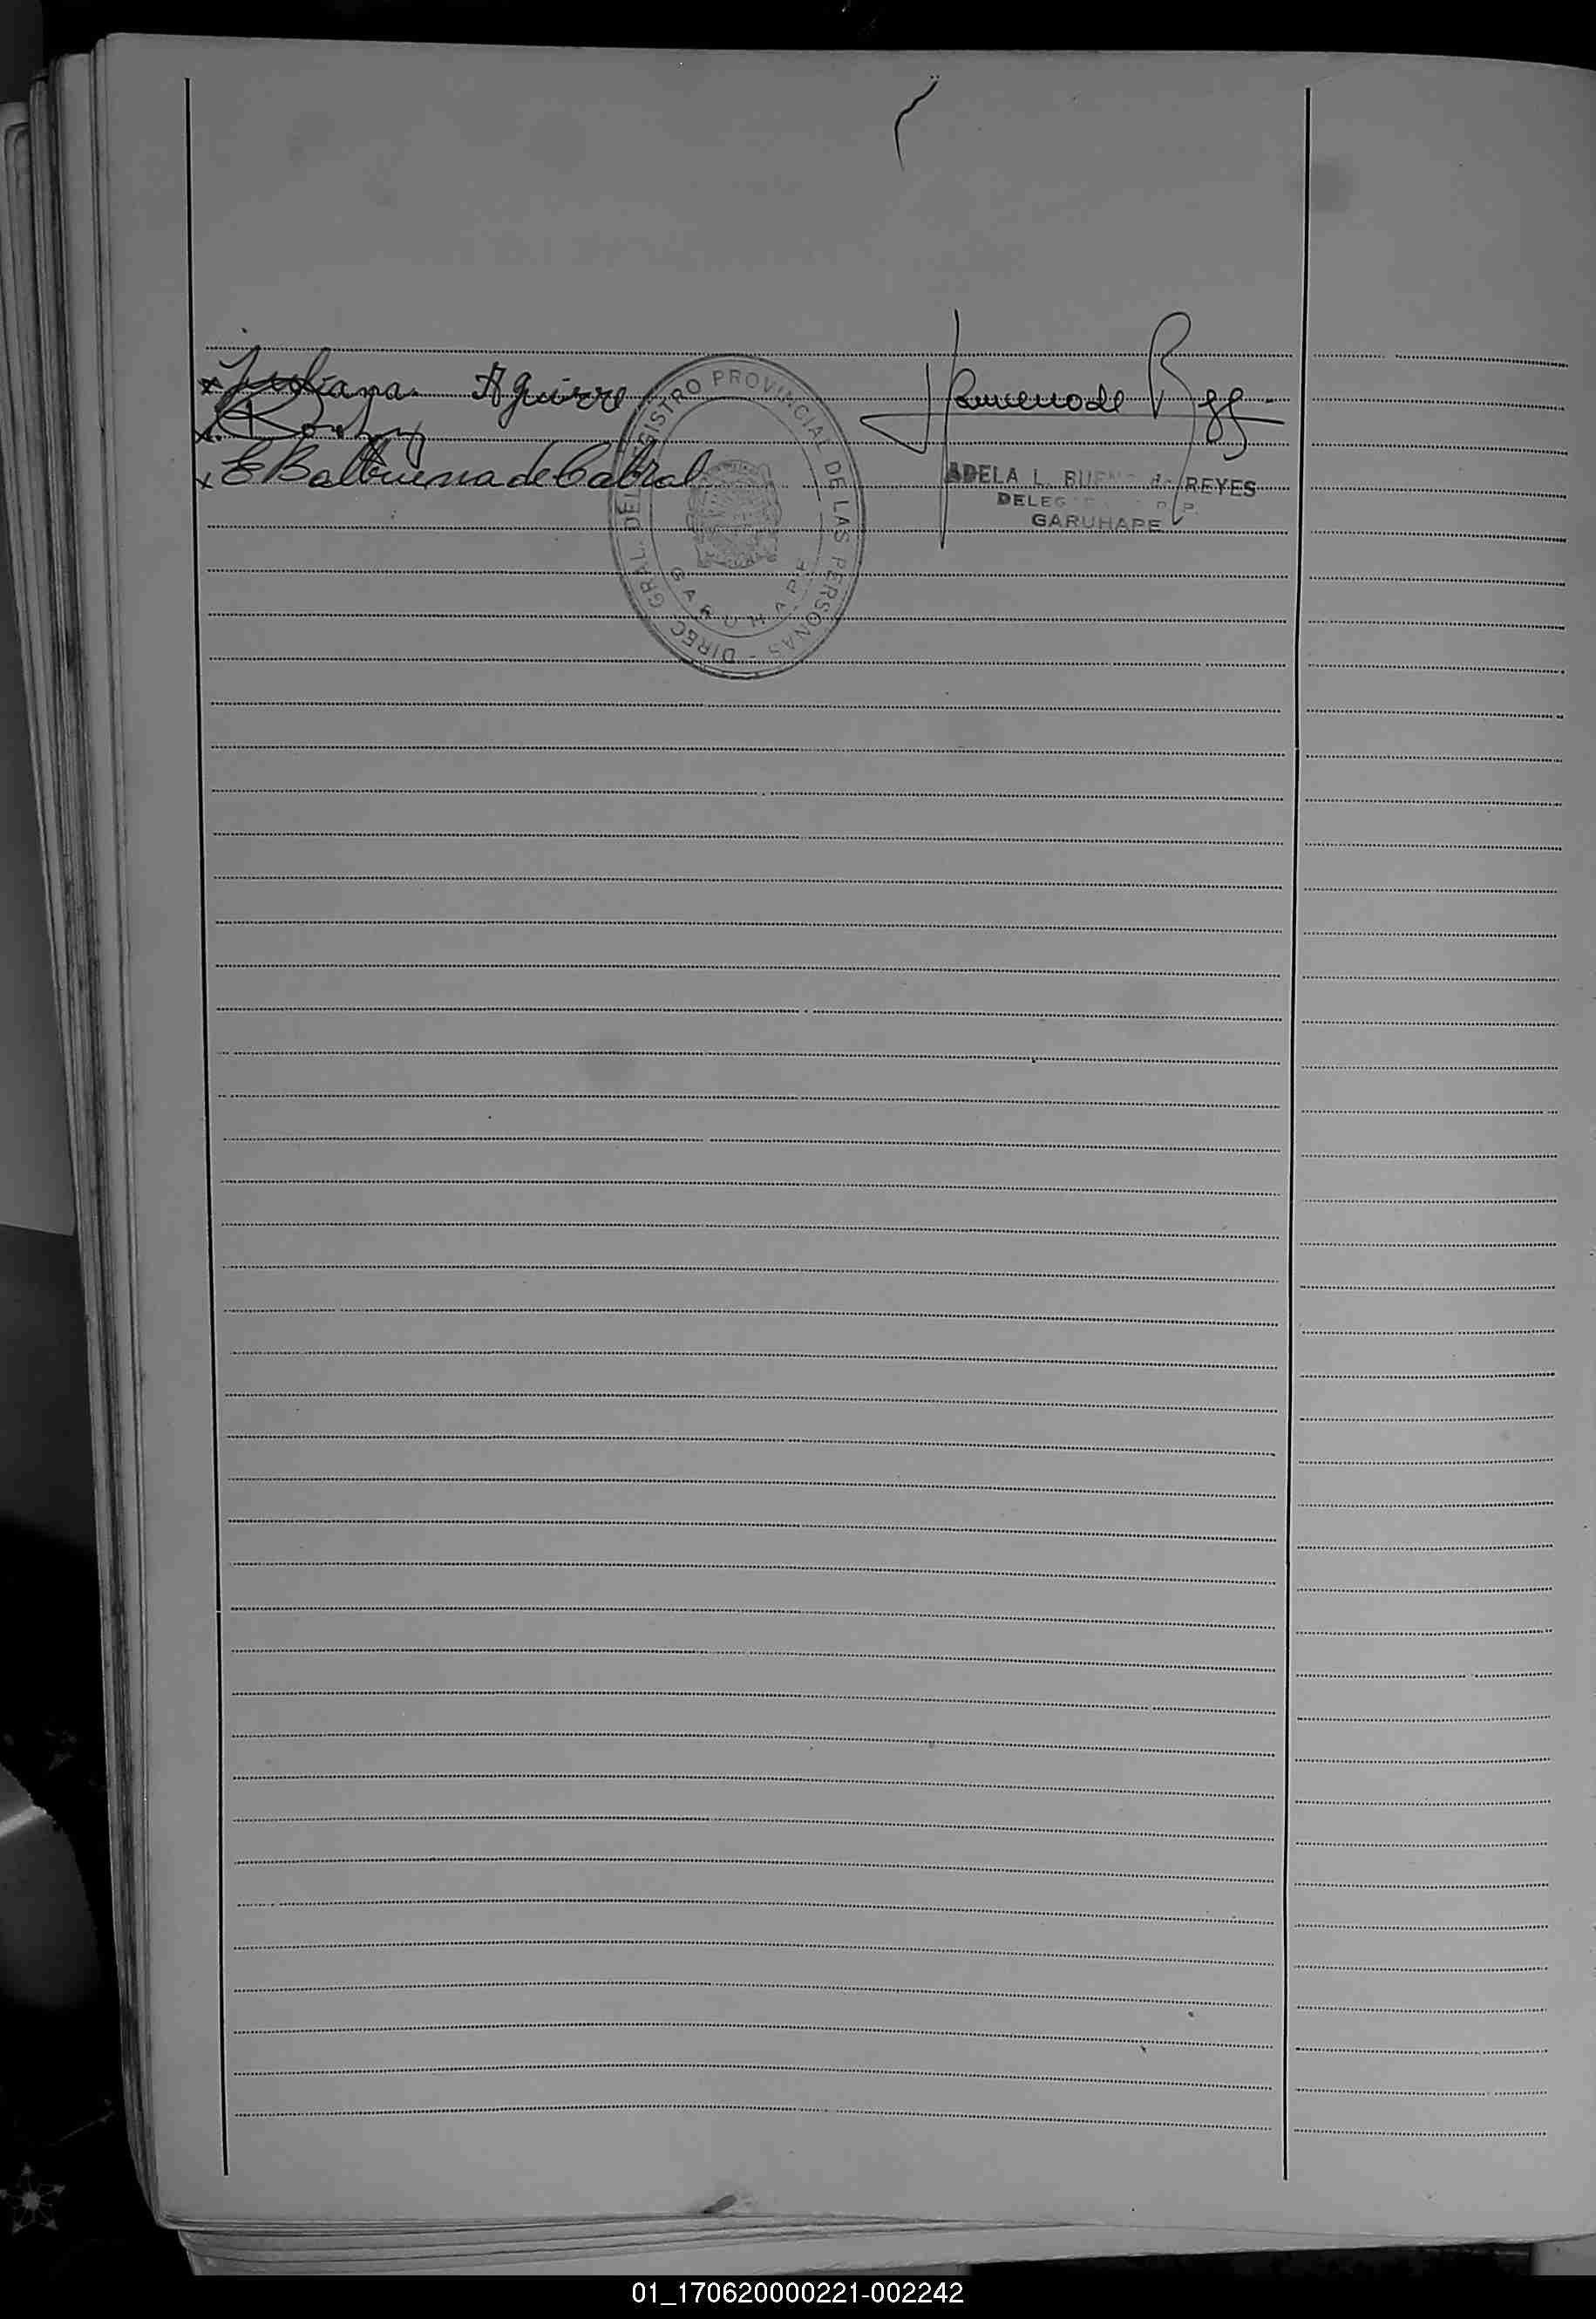 x Juliana Aguirre
x
x E Balbuena de Cabral
DIREC. GRAL. DEL REGISTRO PROVINCIAL DE LAS PERSONAS -
GARUHAPE
ADELA L. BUENO de REYES
GARUHAPE
01_170620000221-002242